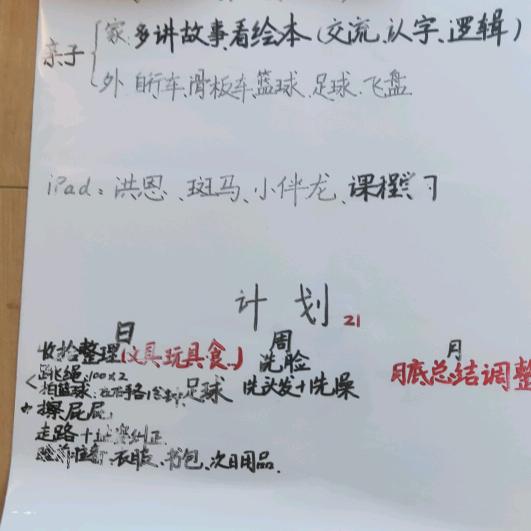 亲子
家 多讲故事看绘本（交流、认字、逻辑）
外 自行车、滑板车、篮球、足球、飞盘
iPad：洪恩、斑马、小伴龙、课程学习
计划 21
日
收拾整理（文具、玩具、食、）
跳绳：100×2
拍篮球：左右手各1分钟、足球
擦屁屁
走路＋ 纠正
睡前准备：衣服、书包、次日用品.
周
洗脸
洗头发＋洗澡
月
月底总结调整